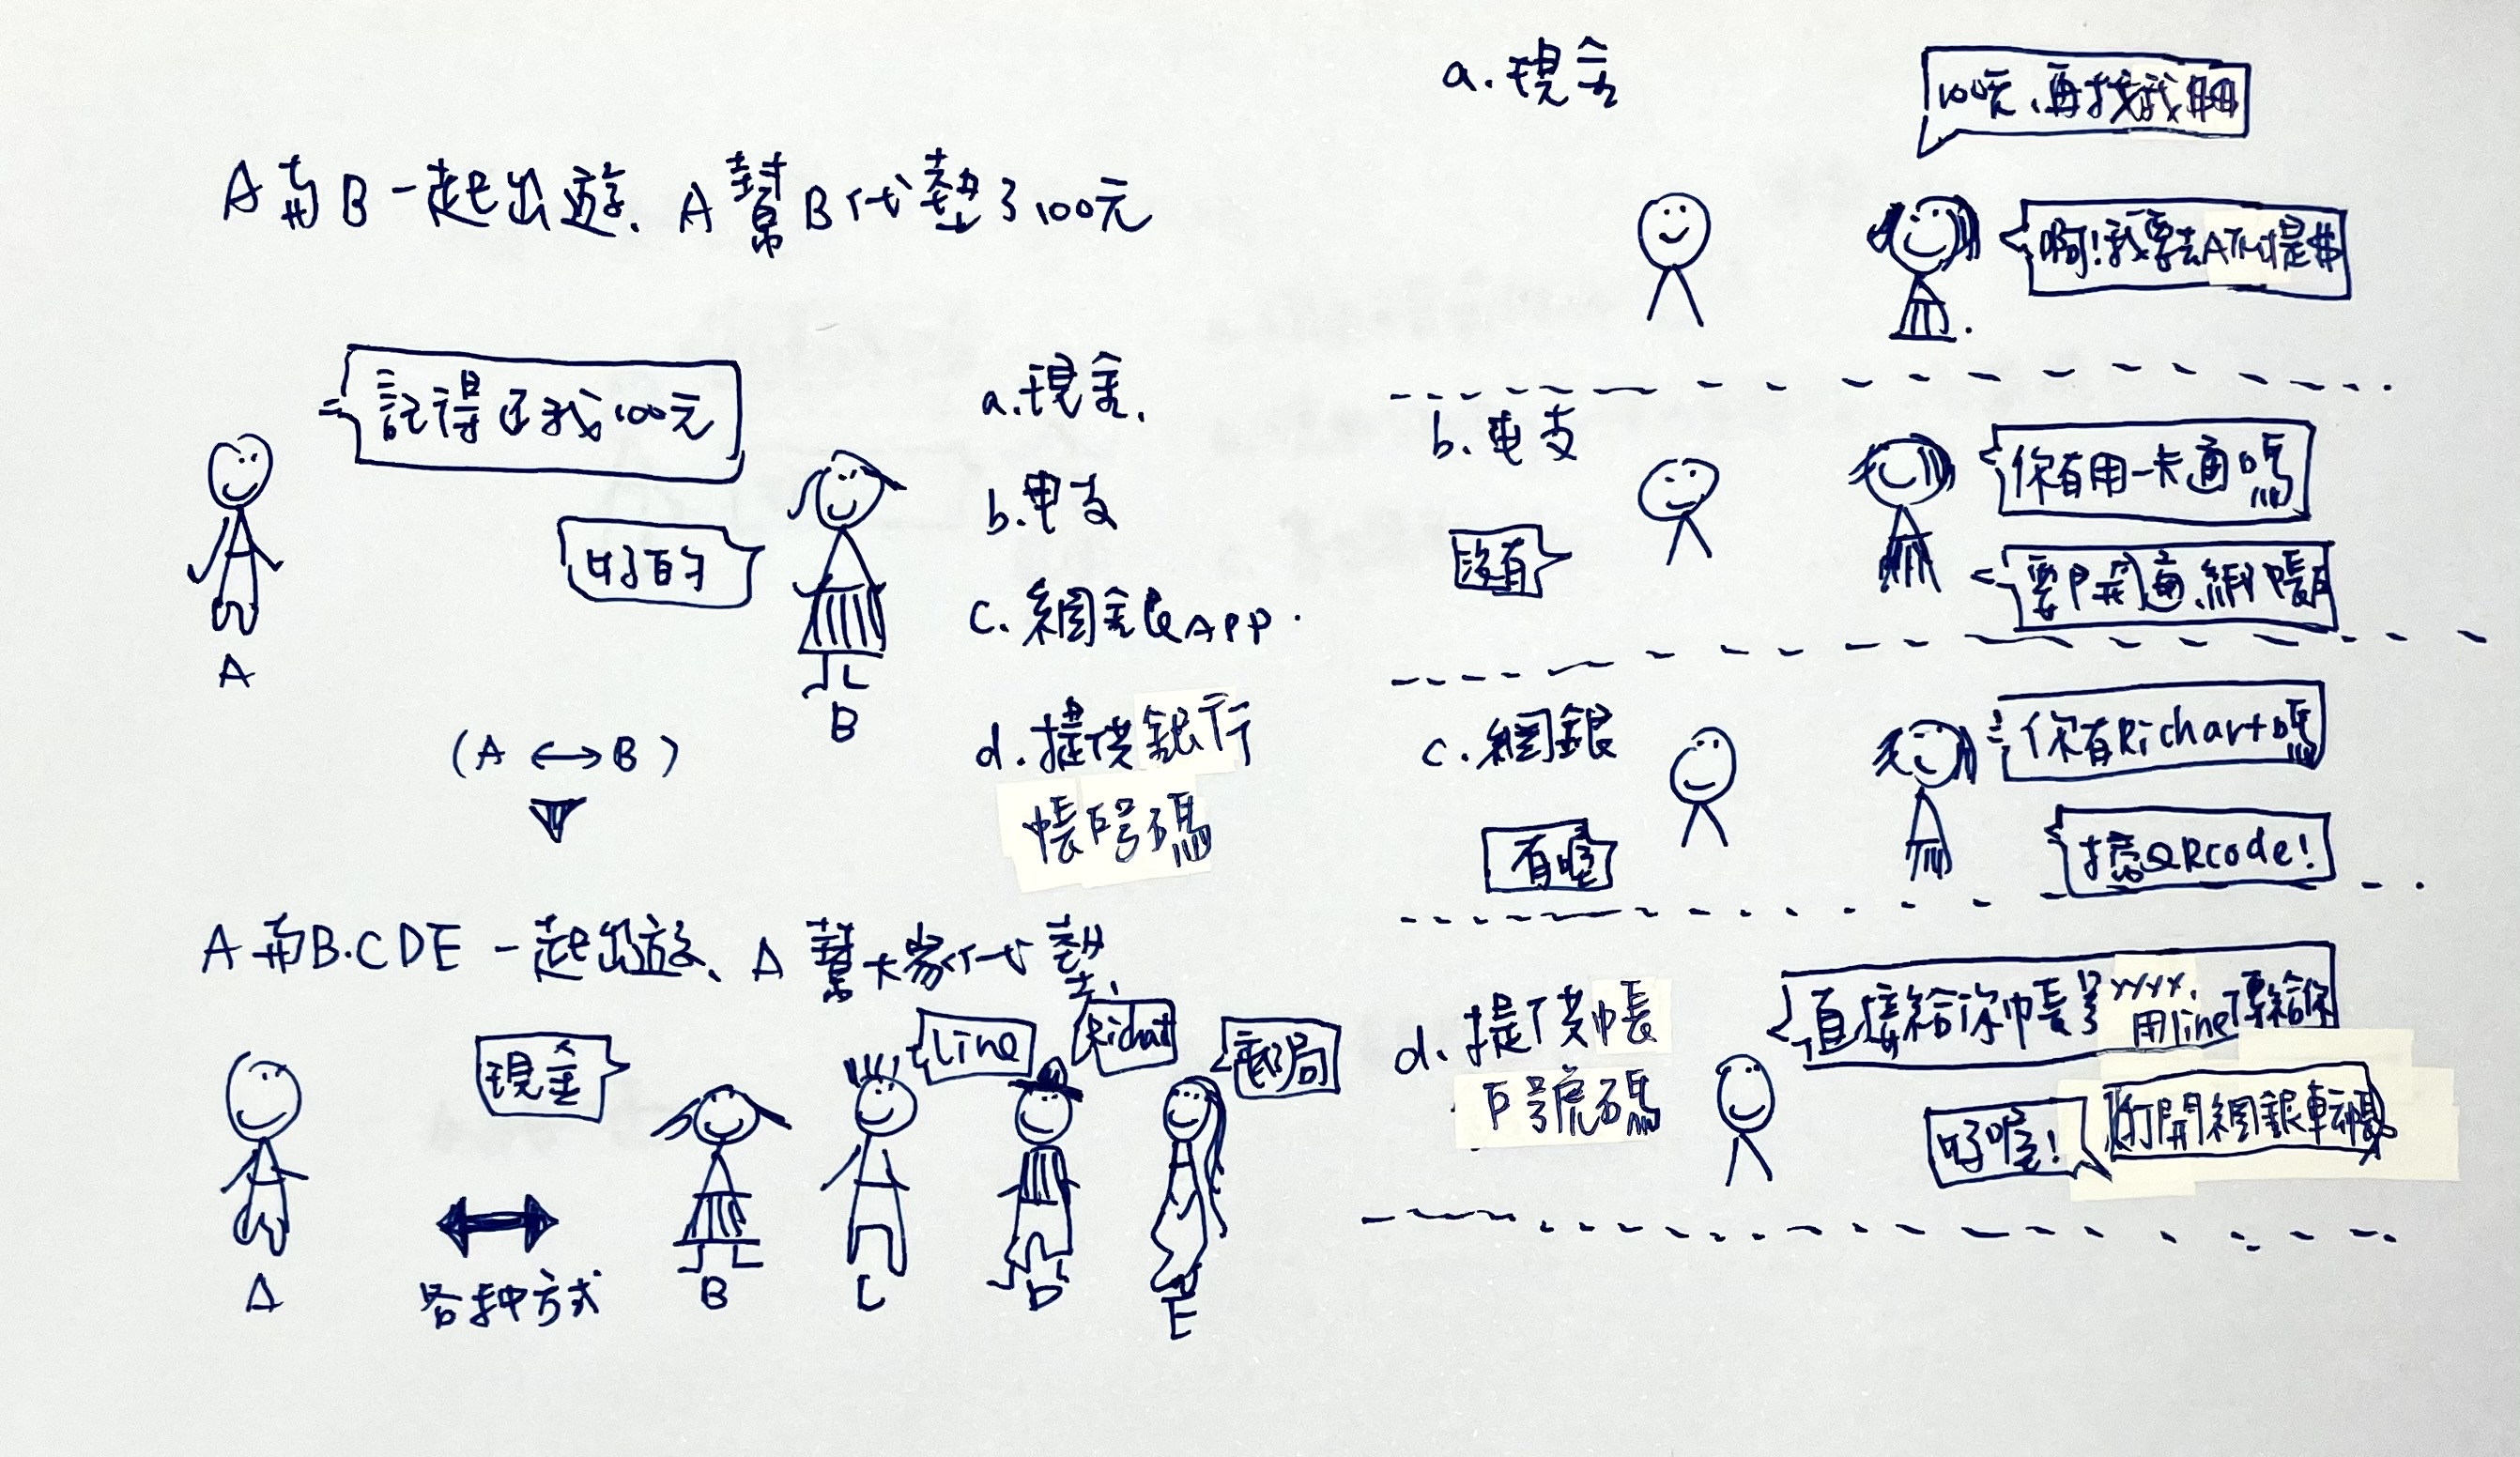 A與B一起出遊、A幫B代墊了100元
記得还我100元
好的
A
B
a.現金、
b.电支
c.網銀APP.
d.提供銀行
帳戶号碼
(A ↔ B)
A與B.CDE一起出遊、A幫大家代墊、
現金
Line
Richart
郵局
各种方式
A
B
C
D
E
a.現金
100元、再找我
啊!我要去ATM提$
b.电支
你有用一卡通嗎
沒有
c.網銀
你有Richart嗎
有喔
掃QRcode!
d.提供帳
戶號碼
直接給你帳号xxxx,
用line傳給你
好喔!
打開網銀轉帳